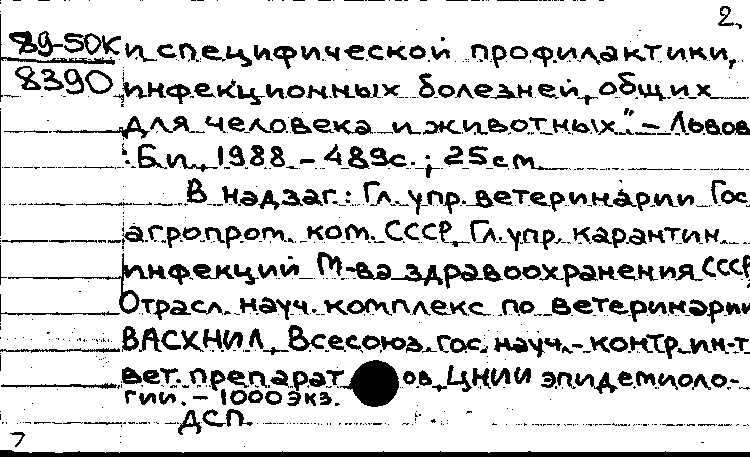 2.
89-50К и специфической профилактики,
8390 инфекционных болезней, общих
для человека и животных". – Львов
: Б.и., 1988 – 489с. ; 25 см
В надзаг.: Гл. упр. ветеринарии Гос
агропром. ком. СССР, Гл. упр. карантин.
инфекций М-ва здравоохранения СССР,
Отрасл. науч. комплекс по ветеринарии
ВАСХНИЛ, Всесоюз. гос. науч.-контр. ин-т
вет. препаратов, ЦНИИ эпидемиоло-
гии. – 1000 экз.
ДСП.
7